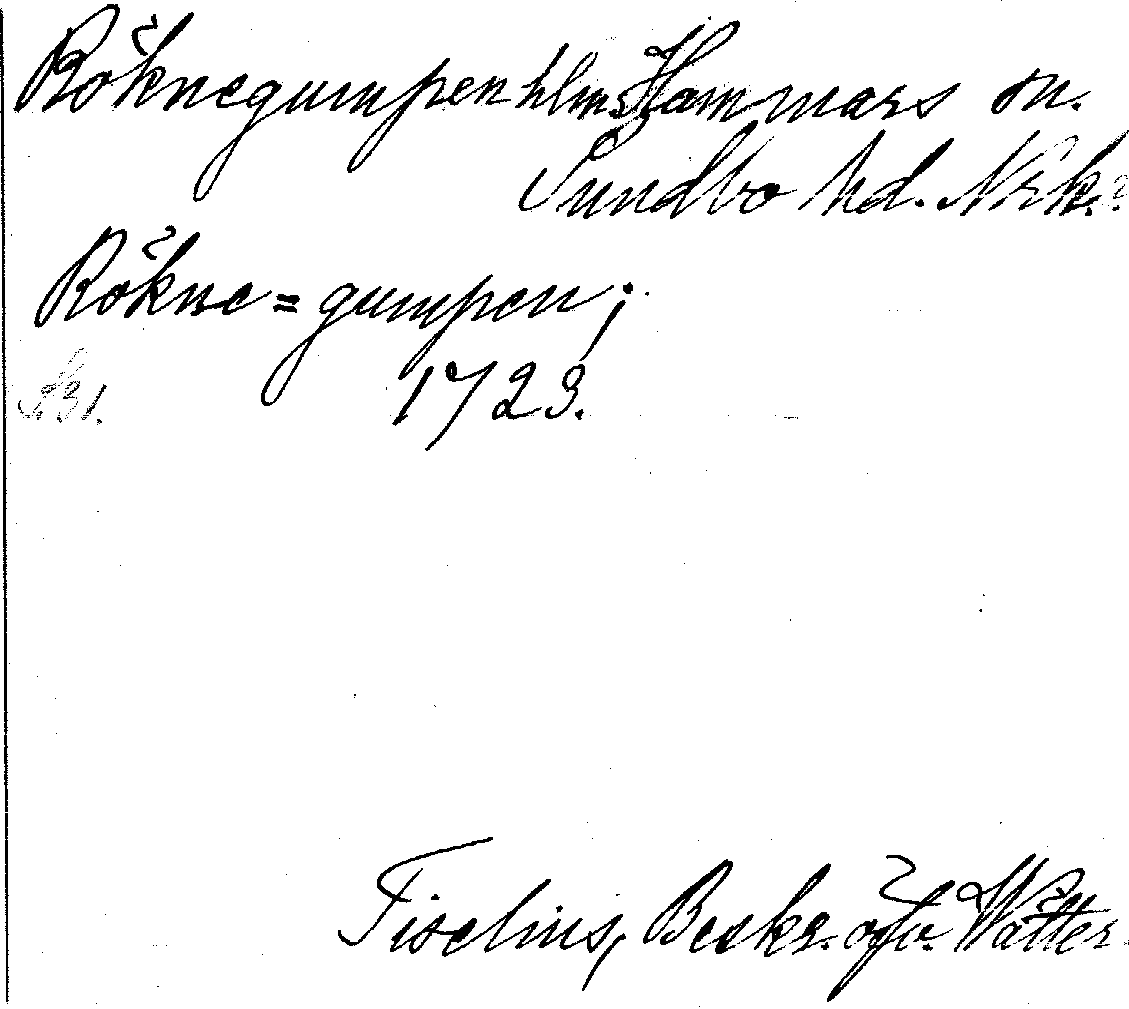 Röknegumpen hlms Hammars sn.
Sundbo hd. Nrk.
Rökne=gumpen;
1723.
Tiselius, Beskr. öfv. Wätter